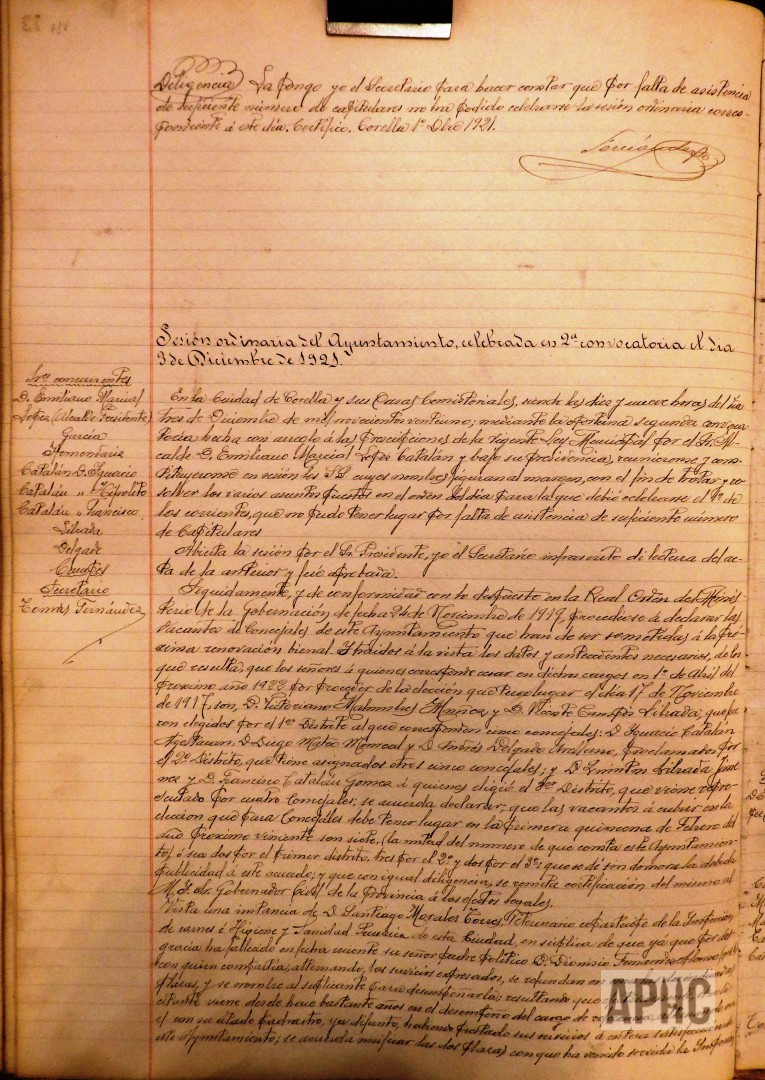 Diligencia La pongo yo el Secretario para hacer constar que por falta de asistencia
de suficiente número de capitulares no ha podido celebrarse la sesión ordinaria corres-
pondiente á este día. Certifico. Corella 1º Dbre 1921.
Sesión ordinaria del Ayuntamiento, celebrada en 2ª convocatoria el dia
3 de Diciembre de 1921.
Sres concurrentes
D. Emiliano Marcial
Lopez (Alcalde Presidente)
Garcia
Catalán D. Ignacio
Catalán " Hipolito
Catalán " Francisco
Librada
Delgado
Secretario
Tomás Fernández
En la Ciudad de Corella y sus Casas Consistoriales, siendo las diez y nueve horas del día
tres de Diciembre de mil novecientos veintiuno; mediante la oportuna segunda convoca
toria hecha con arreglo á las prescripciones de la vigente Ley Municipal por el Sr. Al-
calde D. Emiliano Marcial Lopez Catalán y bajo su Presidencia, reunieronse y cons-
tituyeronse en sesión los SS. cuyos nombres figuran al margen, con el fin de tratar y re-
solver los varios asuntos puestos en el orden del dia para la que debió celebrarse el 1º de
los corrientes, que no pudo tener lugar por falta de asistencia de suficiente número
de Capitulares
Abierta la sesión por el Sr. Presidente, yo el Secretario infrascrito di lectura del ac-
ta de la anterior y fué aprobada.
Seguidamente, y de conformidad con lo dispuesto en la Real Orden del Minis-
terio de la Gobernación de fecha 24 de Noviembre de 1919, procediose á declarar las
vacantes de Concejales de este Ayuntamiento que han de ser sometidas á la pró-
xima renovación bienal. Traidos á la vista los datos y antecedentes necesarios, de los
que resulta, que los señores á quienes corresponde cesar en dichos cargos en 1º de Abril del
próximo año 1922 por proceder de la elección que tuvo lugar el dia 17 de Noviembre
de 1917, son, D. Victoriano Malumbres Muñoz y D. Vicente Campos Librada, que fue
ron elegidos por el 1er Distrito al que corresponden cinco concejales; D. Ignacio Catalán
D. Diego Mateo Monreal y D. Andrés Delgado proclamados por
el 2º Distrito, que tiene asignados otros cinco concejales; y D. Librada Jime
nez y D. Francisco Catalán Gomez á quienes eligió el 3er Distrito, que viene repre-
sentado por cuatro Concejales; se acuerda declarar; que las vacantes á cubrir en la
elección que para Concejales debe tener lugar en la primera quincena de Febrero del
año próximo viniente son siete, (la mitad del número de que consta este Ayuntamien-
to) ó sea dos por el primer distrito, tres por el 2º y dos por el 3º; que se dé sin demora la debida
publicidad á este acuerdo; y que con igual diligencia, se remita certificación del mismo al
M. I. Sr. Gobernador Civil de la Provincia á los efectos legales.
Vista una instancia de D. Santiago Morales Torres, Veterinario copartícipe de la Inspección
de carnes é Higiene y Sanidad Pecuaria de esta Ciudad, en súplica de que ya que por des
gracia ha fallecido en fecha reciente su señor padre político D. Dionisio Fernandez Alonso
con quien compartia, alternando, los servicios expresados, se refundan en
plazas, y se nombre al suplicante para desempeñarla; resultando que
citante viene desde hace bastante años en el desempeño del cargo de
el con su citado padrastro, ya difunto, habiendo prestado sus servicios á entera satisfacción de
este Ayuntamiento; se acuerda unificar las dos plazas con que ha venido la Inspección
APHC